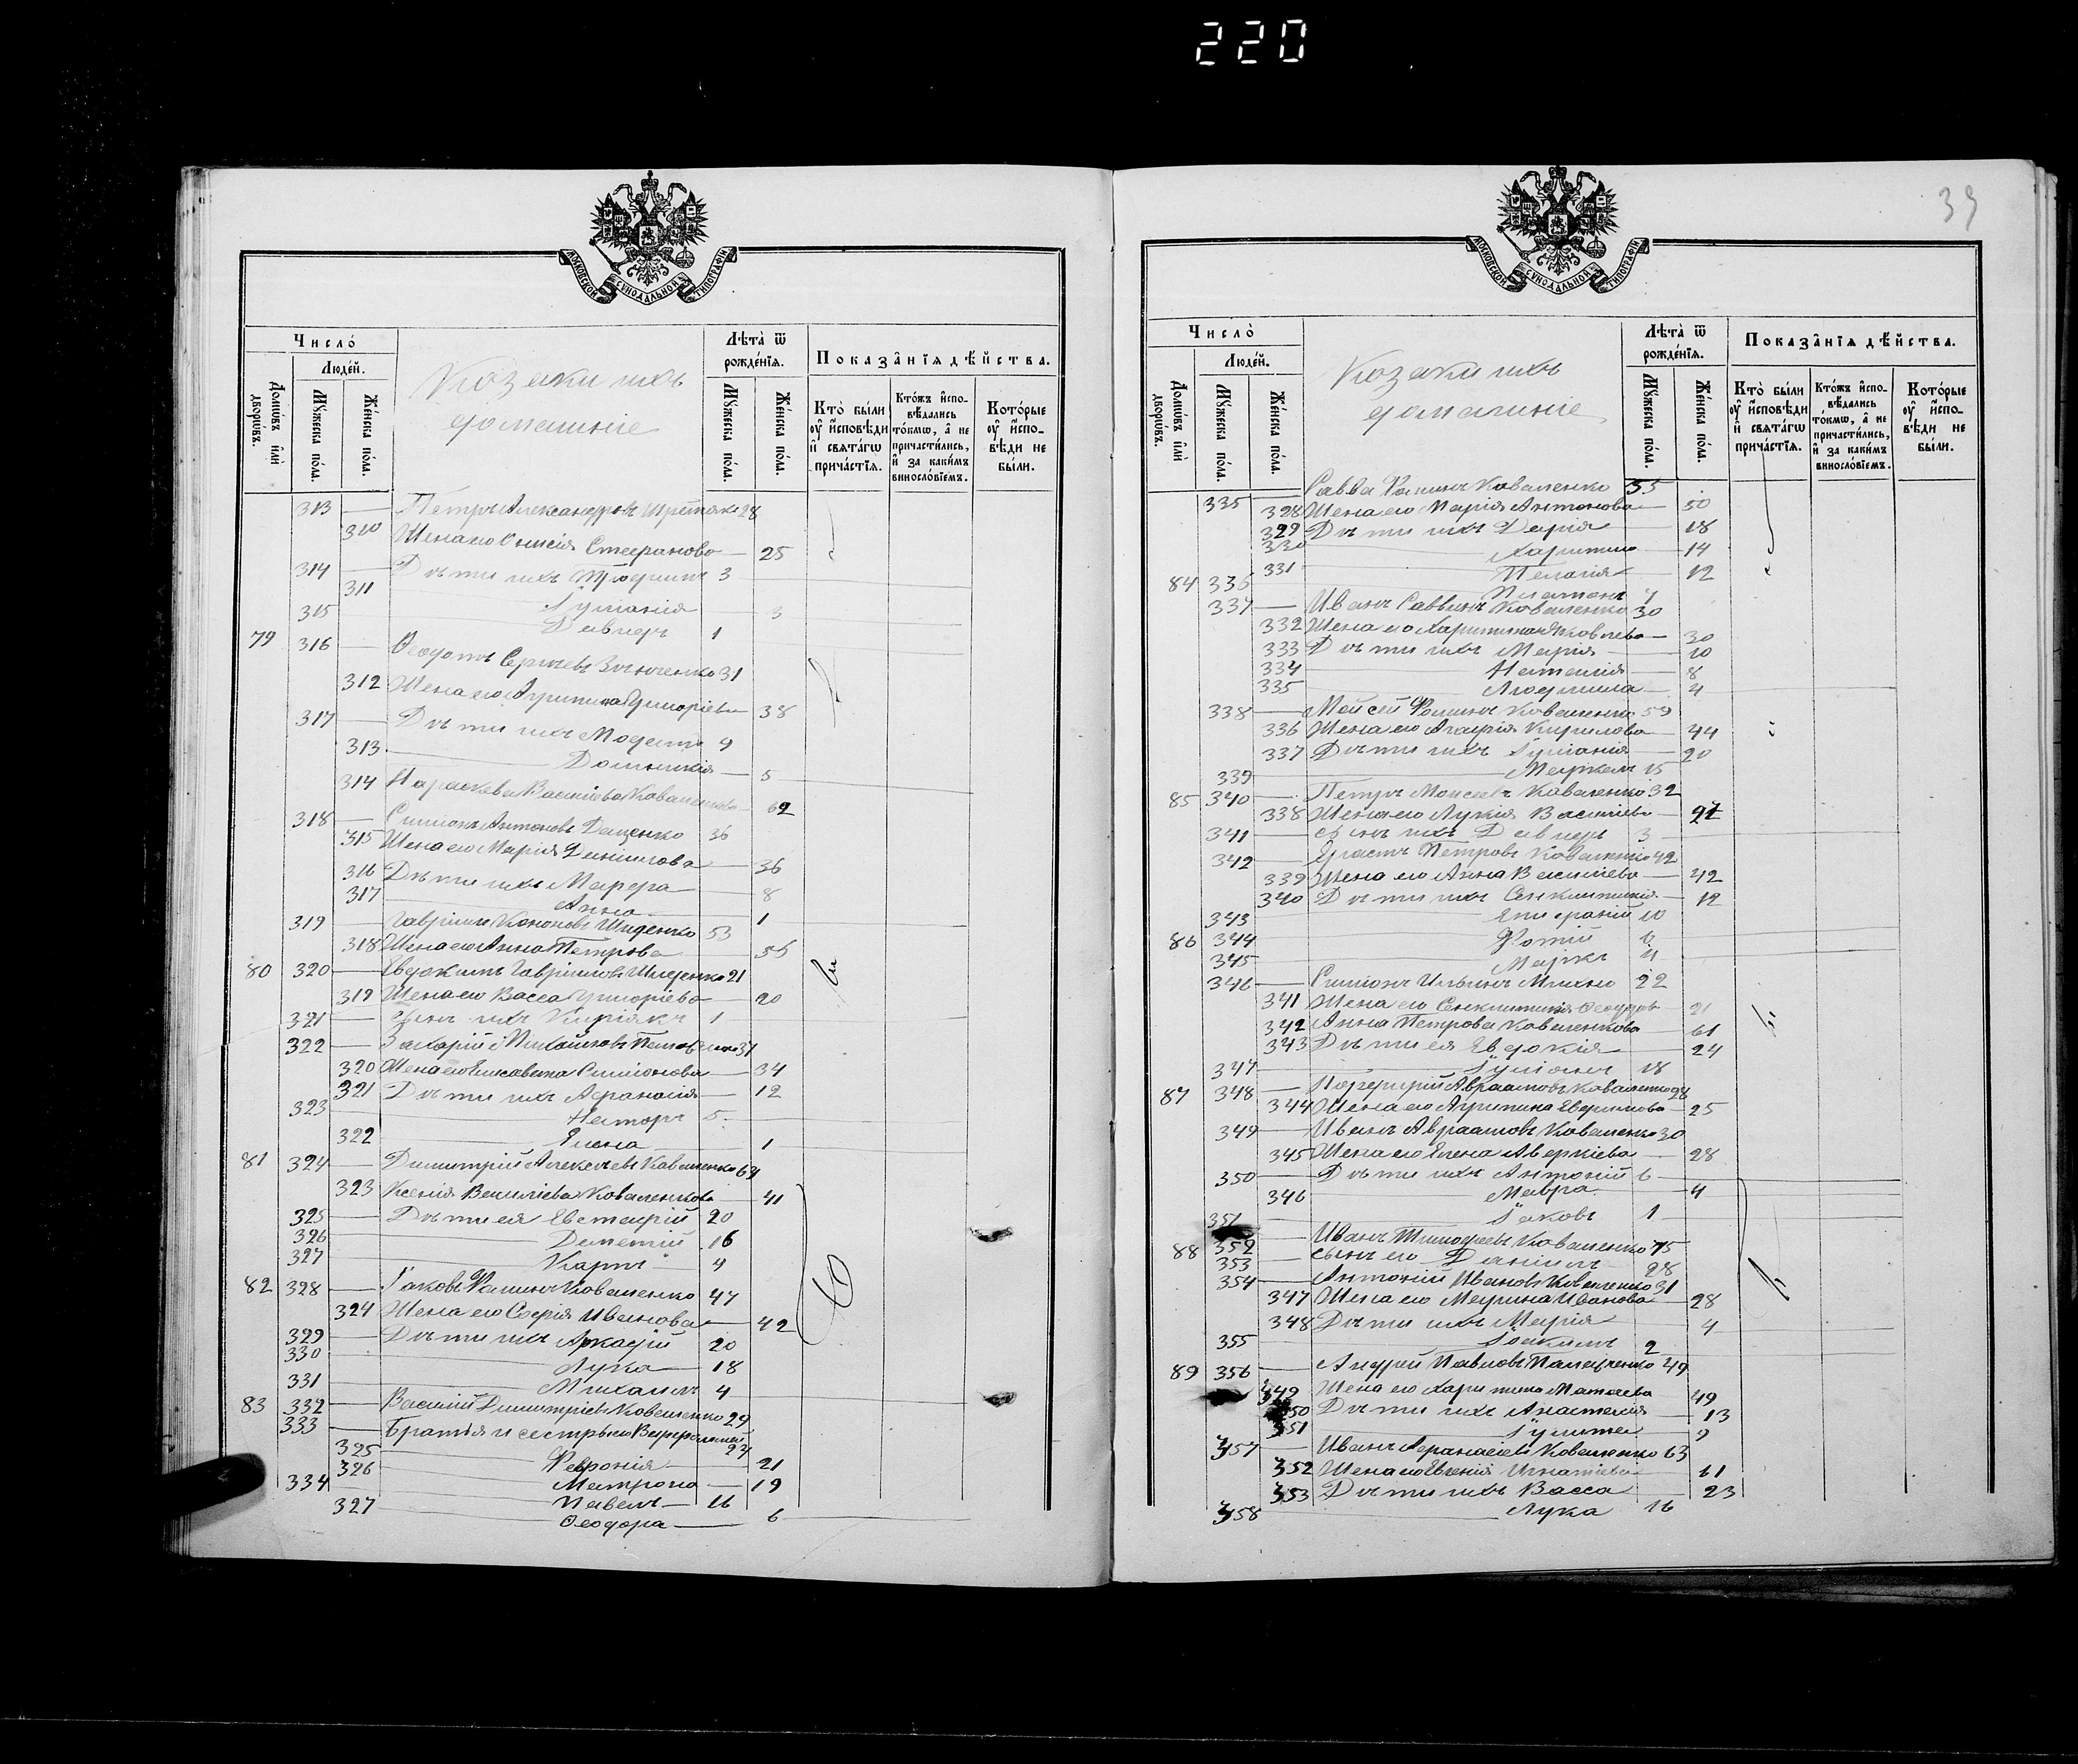 220
МОСКОВСКОЙ СУНОДАЛЬНОЙ ТИПОГРАФІИ
Число̀
Людéй.
Домѡ́въ и҆лѝ дворѡ́въ.
Мꙋ́жеска по́ла.
Же́нска по́ла.
Козаки ихъ
домашніе
Лѣта̀ ѿ рожде́нїѧ.
Мꙋ́жеска по́ла.
Же́нска по́ла.
Показа̑нїѧ дѣ́йства.
Кто̀ бы́ли ᲂу҆ и҆сповѣ́ди и҆ свѧта́гѡ прича́стїѧ.
Кто́жъ и҆сповѣ́дались то́кмѡ, а҆ не причасти́лись, и҆ за каки́мъ винословїемъ.
Кото́рые ᲂу҆ и҆сповѣ́ди не бы́ли.
313 Петръ Александровъ 28
310 Жена его Стефанова 25
314 Дѣти ихъ 3
311 Іуліанія 3
315 Давидъ 1
79 316 Ѳеодотъ Сергіевъ 31
312 Жена его Агрипина Григоріева 38
317 Дѣти ихъ Модестъ 9
313 Домникія 5
314 Параскева Василіева 62
318 Симеонъ Антоновъ Даценко 36
315 Жена его Марія Даниилова 36
316 Дѣти ихъ Марѳа 8
317 Анна 1
319 Гавріилъ Кононовъ 53
318 Жена его Анна Петрова 55
80 320 Евдокимъ Гавріиловъ 21
319 Жена его Васса Григоріева 20
321 Сынъ ихъ Киріякъ 1
322 Захарій Михайловъ 37
320 Жена его Елисавета Симеонова 34
321 Дѣти ихъ Аѳанасія 12
323 Несторъ 5
322 Елена 1
81 324 Димитрій Алексѣевъ Коваленко 64
323 Ксенія Василіева Коваленкова 41
325 Дѣти ея Евстафій 20
326 Дометій 16
327 Карпъ 9
82 328 Іаковъ Фоминъ Коваленко 47
324 Жена его Софія Иванова 42
329 Дѣти ихъ Аркадій 20
330 Лука 18
331 Михаилъ 4
83 332 Василій Димитріевъ Коваленко 29
333 Братья и сестры его Варѳоломей 23
325 Феѵронія 21
326 Матрона 19
334 Павелъ 16
327 Ѳеодора 6
39
МОСКОВСКОЙ СУНОДАЛЬНОЙ ТИПОГРАФІИ
Число̀
Людéй.
Домѡ́въ и҆лѝ дворѡ́въ.
Мꙋ́жеска по́ла.
Же́нска по́ла.
Козаки ихъ
домашніе
Лѣта̀ ѿ рожде́нїѧ.
Мꙋ́жеска по́ла.
Же́нска по́ла.
Показа̑нїѧ дѣ́йства.
Кто̀ бы́ли ᲂу҆ и҆сповѣ́ди и҆ свѧта́гѡ прича́стїѧ.
Кто́жъ и҆сповѣ́дались то́кмѡ, а҆ не причасти́лись, и҆ за каки́мъ винословїемъ.
Кото́рые ᲂу҆ и҆сповѣ́ди не бы́ли.
335 Савва Фоминъ Коваленко 53
328 Жена его Марія Антонова 50
329 Дѣти ихъ Дарія 18
330 Харитина 14
331 Пелагія 12
84 336 Платонъ 7
337 Иванъ Саввинъ Коваленко 30
332 Жена его Харитина Яковлева 30
333 Дѣти ихъ Марія 10
334 Наталія 8
335 Людмила 4
338 Моисей Фоминъ Коваленко 59
336 Жена его Агафія Кирилова 44
337 Дѣти ихъ Іуліанія 20
339 Маркелъ 15
85 340 Петръ Моисеевъ Коваленко 32
338 Жена его Лукія Василіева 27
341 Сынъ ихъ Давидъ 3
342 Ерастъ Петровъ Коваленко 42
339 Жена его Анна Василіева 42
340 Дѣти ихъ Сенклитикія 12
343 Епифаній 10
86 344 Фотій 6
345 Маркъ 4
346 Симеонъ Ильинъ Михно 22
341 Жена его Сенклитикія Ѳеодор 21
342 Анна Петрова Коваленкова 61
343 Дѣти ея Евдокія 24
347 Іуліанъ 18
87 348 Порфирій Авраамовъ Коваленко 28
344 Жена его Агрипина Ефимова 25
349 Иванъ Авраамовъ Коваленко 30
345 Жена его Елена Аверкіева 28
350 Дѣти ихъ Антоній 6
346 Мавра 4
351 Іаковъ 1
88 352 Иванъ Тимоѳеевъ Коваленко 75
353 Сынъ его Даніилъ 28
354 Антоній Ивановъ Коваленко 31
347 Жена его Марина Иванова 28
348 Дѣти ихъ Марія 4
355 Іоакимъ 2
89 356 Андрей Павловъ 49
349 Жена его Харитина Матѳеева 49
350 Дѣти ихъ Анастасія 13
351 Іулитта 9
357 Иванъ Аѳанасіевъ Коваленко 63
352 Жена его Евгенія Игнатіева 61
353 Дѣти ихъ Васса 23
358 Лука 16